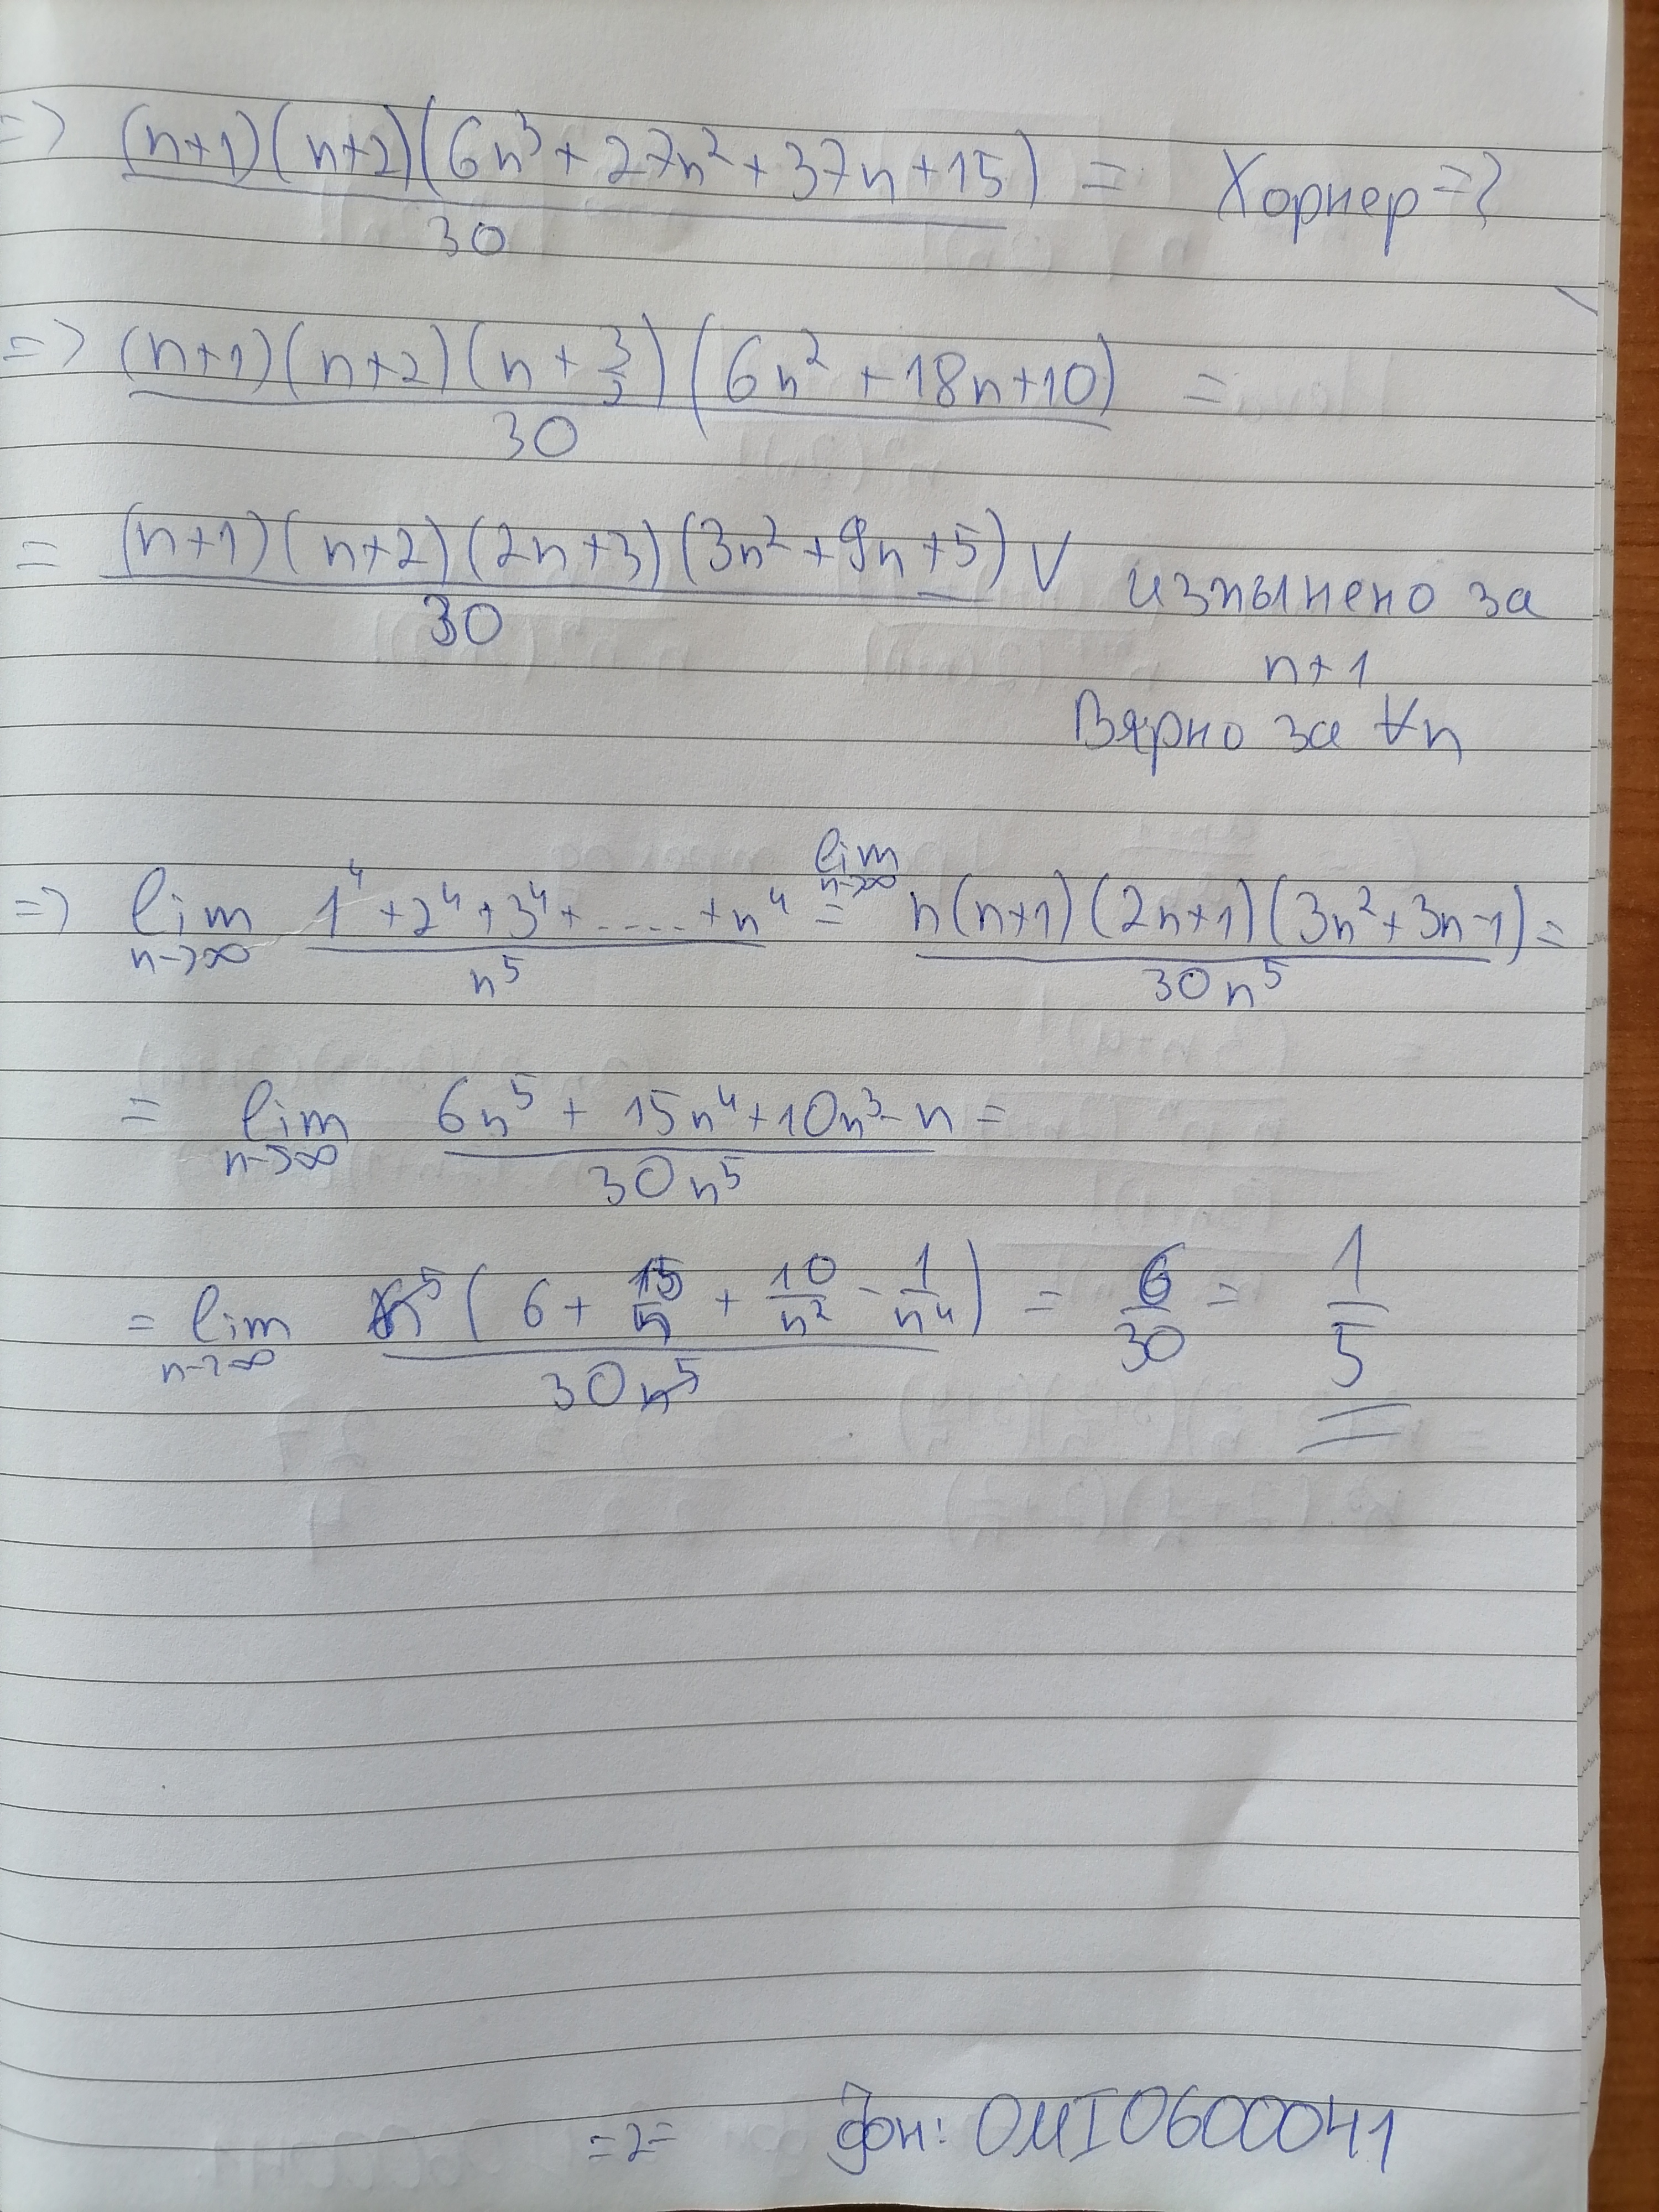 => (n+1)(n+2)(6n³+27n²+37n+15)/30 = Хорнер =?
=> (n+1)(n+2)(n+3/3)(6n²+18n+10)/30 =
= (n+1)(n+2)(2n+3)(3n²+9n+5)/30 V изпылнено за
n+1
Вярно за ∀n
=> lim n->∞ 1⁴+2⁴+3⁴+....+n⁴/n⁵ = lim n->∞ n(n+1)(2n+1)(3n²+3n-1)/30n⁵ =
= lim n->∞ 6n⁵ + 15n⁴+10n³-n/30n⁵ =
= lim n->∞ n⁵(6+15/n+10/n²-1/n⁴)/30n⁵ = 6/30 = 1/5
=2= фон: ОМІ0600041